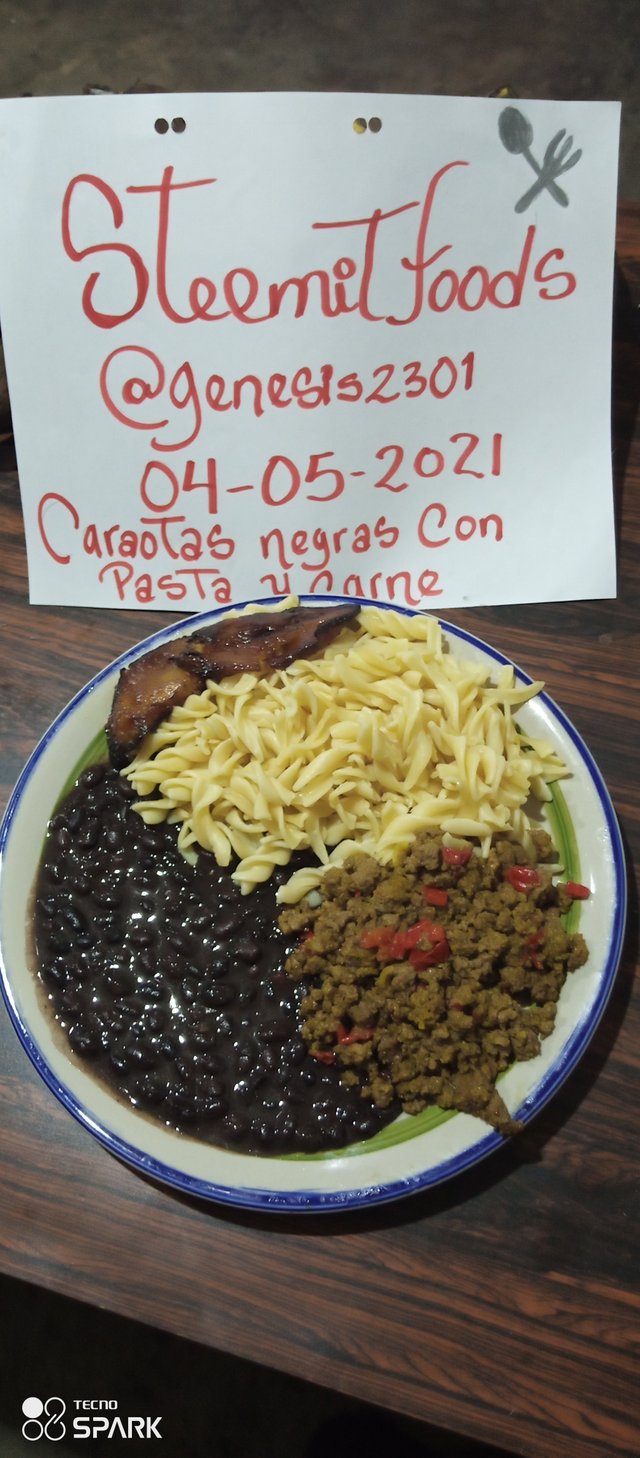 Steemit foods
@genesis2301
04-05-2021
Caraotas negras Con
Pasta y carne
TECNO
SPARK